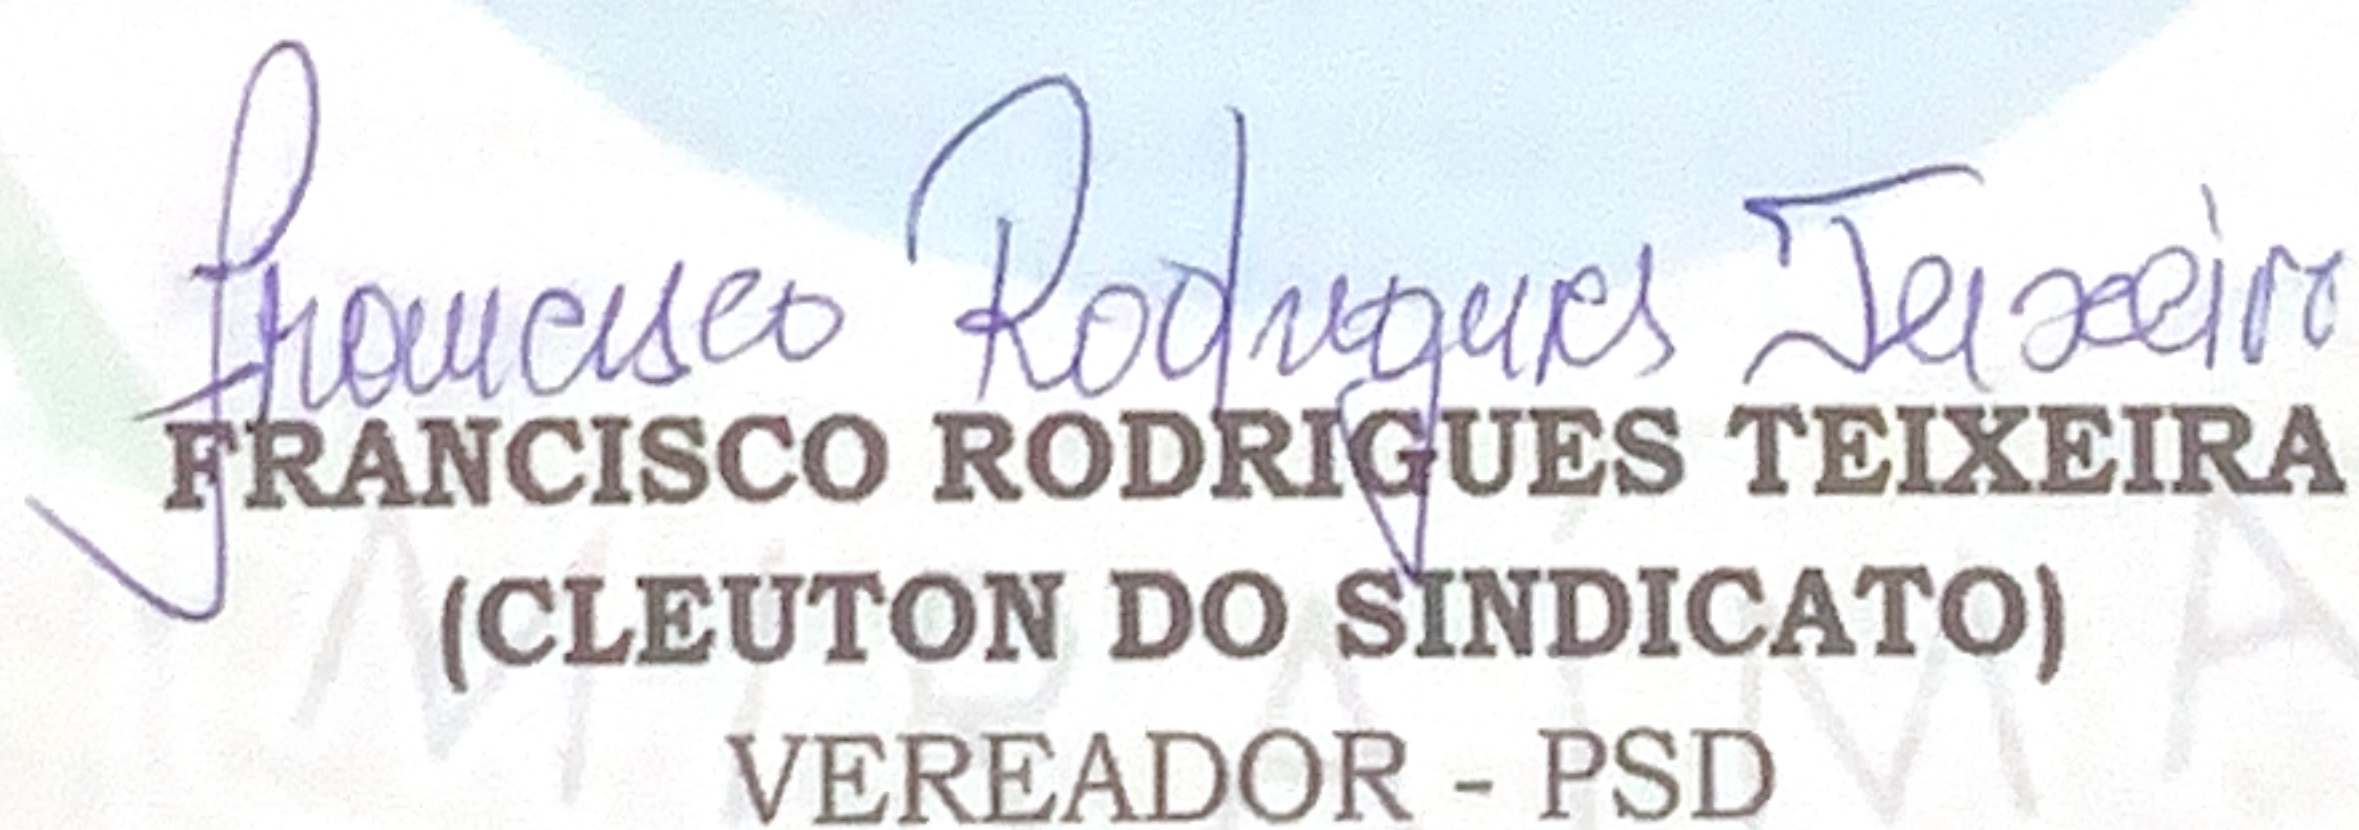 Francisco Rodrigues Teixeira
FRANCISCO RODRIGUES TEIXEIRA
(CLEUTON DO SINDICATO)
VEREADOR - PSD
MIRAÍMA